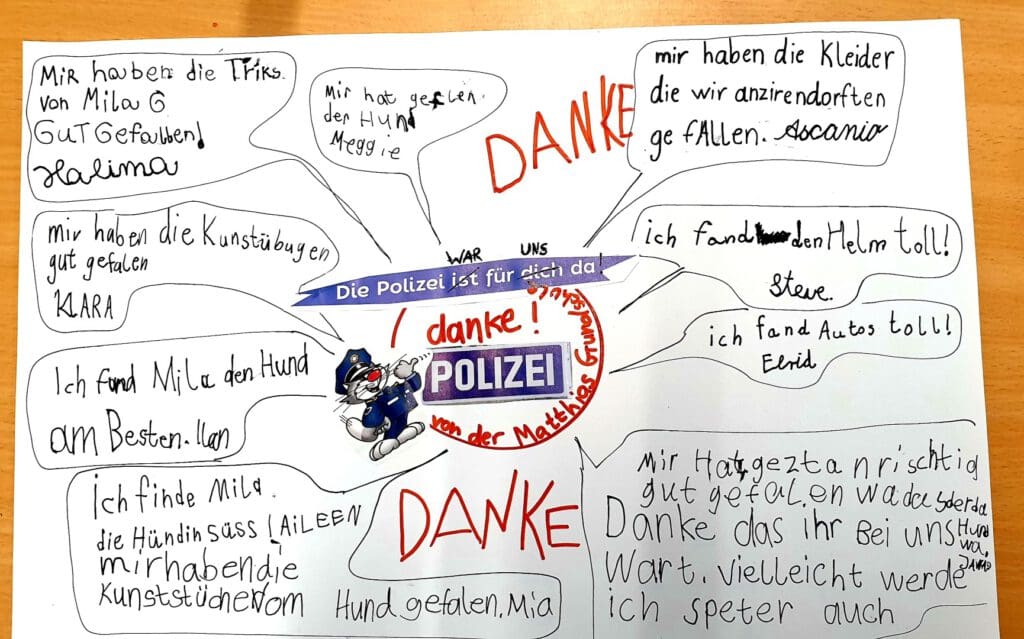 Mir haben die Triks.
von Mila G
GUT Gefallben!
Halima
Mir hat gefelen.
der Hund
Meggie
DANKE
mir haben die Kleider
die wir anzirendorften
gefAllen. Ascanio
mir haben die Kunstübugen
gut gefalen
KLARA
WAR UNS
Die Polizei ist für dich da!
ich fand den Helm toll!
Steve.
danke!
POLIZEI
von der Matthias Grundschule
ich fand Autos toll!
Elrid
Ich fand Mila den Hund
am Besten. Ilan
Ich finde Mila.
die Hündin süss! AiLEEN
mir haben die
Kunststücke vom Hund gefalen. Mia
DANKE
Mir Hat geztan rischtig
gut gefalen wa da
Hund
wa.
Danke das ihr Bei uns
Wart. vielleicht werde
ich speter auch